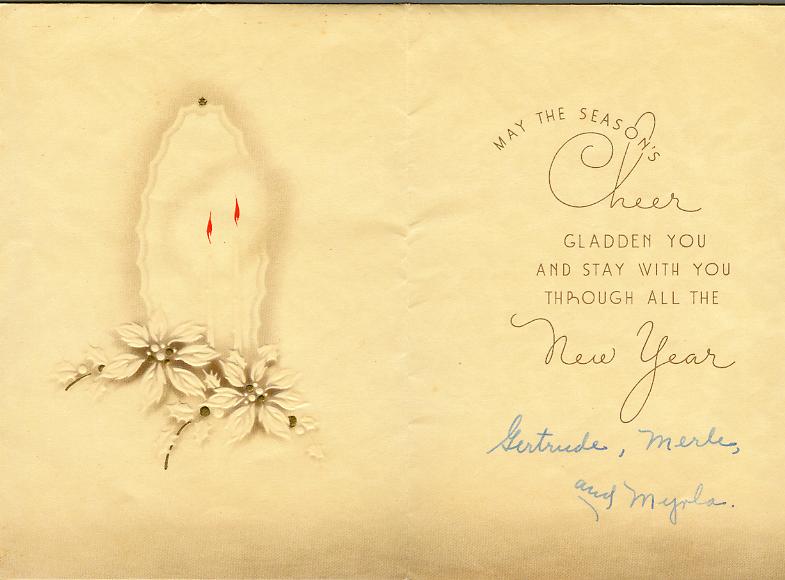 MAY THE SEASON'S
Cheer
GLADDEN YOU
AND STAY WITH YOU
THROUGH ALL THE
New Year
Gertrude, Merle,
and Myrla.